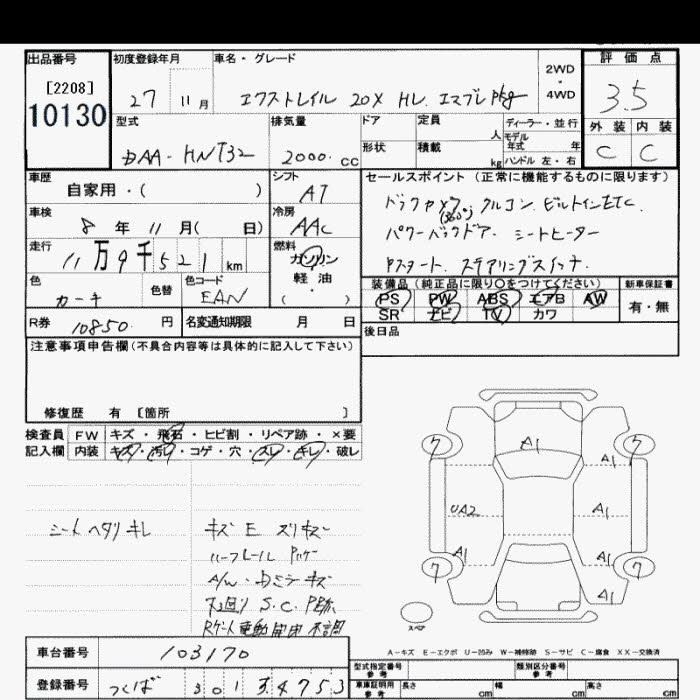 出品番号
[2208]
10130
初度登録年月
27 11月
車名・グレード
エクストレイル 20X HV エマブレPkg
2WD
・
4WD
評価点
3.5
外装 内装
C C
型式
DAA-HNT32
排気量
2000 cc
ドア
形状
定員
人
積載
kg
ディーラー・並行
モデル
年式 年
ハンドル 左・右
車歴
自家用・( )
シフト
AT
車検
8年 11月( 日)
冷房
AAC
走行
11万9千521km
燃料
ガソリン
軽油
・
( )
色
カーキ
色替
色コード
EAN
R券
10850 円
名変通知期限 月 日
セールスポイント(正常に機能するものに限ります)
バックカメラ(360°) クルコン ビルトインETC
パワーバックドア シートヒーター
Pスタート ステアリングスイッチ
装備品(純正品に限り○をつけてください)
PS PW ABS エアB AW
SR ナビ TV カワ
新車保証書
有・無
後日品
注意事項申告欄(不具合内容等は具体的に記入して下さい)
修復歴 有 [箇所 ]
検査員
記入欄
FW キズ・飛石・ヒビ割・リペア跡・×要
内装 キズ・汚レ・コゲ・穴・スレ・キレ・破レ
シートヘタリキレ
キズ E スリキズ
A/W・ドミラーキズ
下回り S.C. P跡
Rゲート電動開閉不調
A1
7
7
A1
UA2
A1
A1
A1
7
7
A1
スペア
A-キズ E-エクボ U-凹み W-補修跡 S-サビ C-腐食 XX-交換済
車台番号
103170
登録番号
つくば 301 す 4753
型式指定番号
参考
類別区分番号
参考
車庫証明用
参考
長さ cm
幅 cm
高さ cm